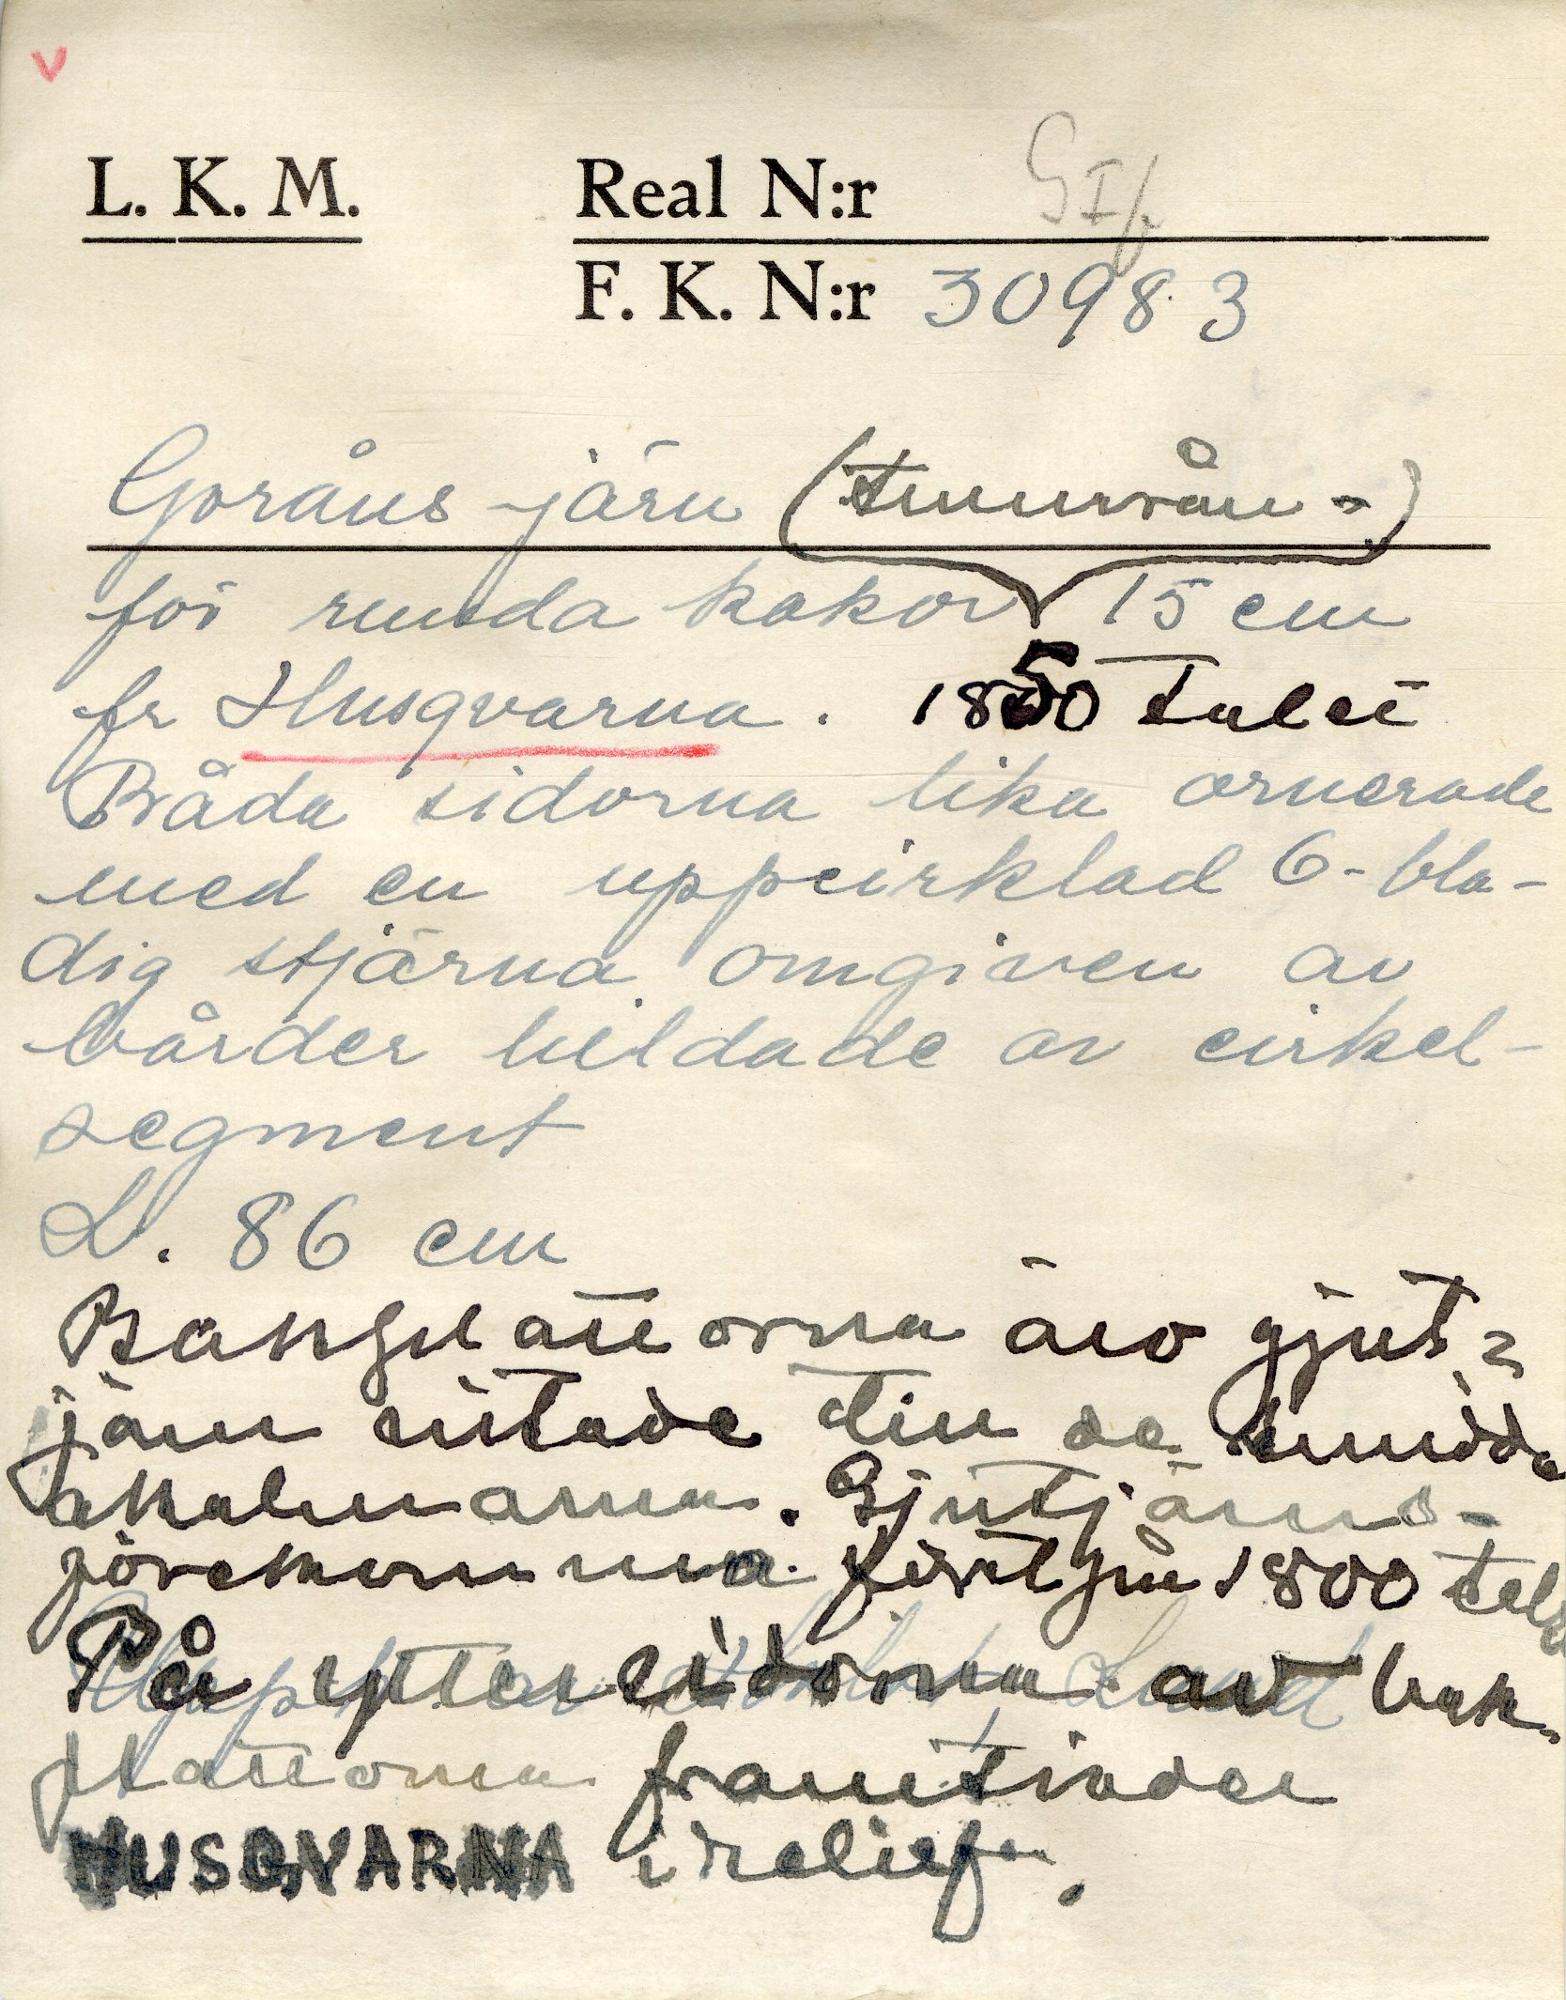 v
L. K. M. Real N:r GI f.
F. K. N:r 30983
Goråns-järn (tunnrån-)
för runda kakor 15 cm
fr Husqvarna. 1850 talet
Båda sidorna lika ornerade
med en uppcirklad 6-bla-
dig stjärna omgiven av
bårder bildade av cirkel-
segment
L. 86 cm
Bakplattorna äro gjut-
järn nitade till de smidda
skalmarna. Gjutjärns-
förekomma först på 1800 tal
På yttersidorna av bak-
plattorna framträder
HUSQVARNA i relief.